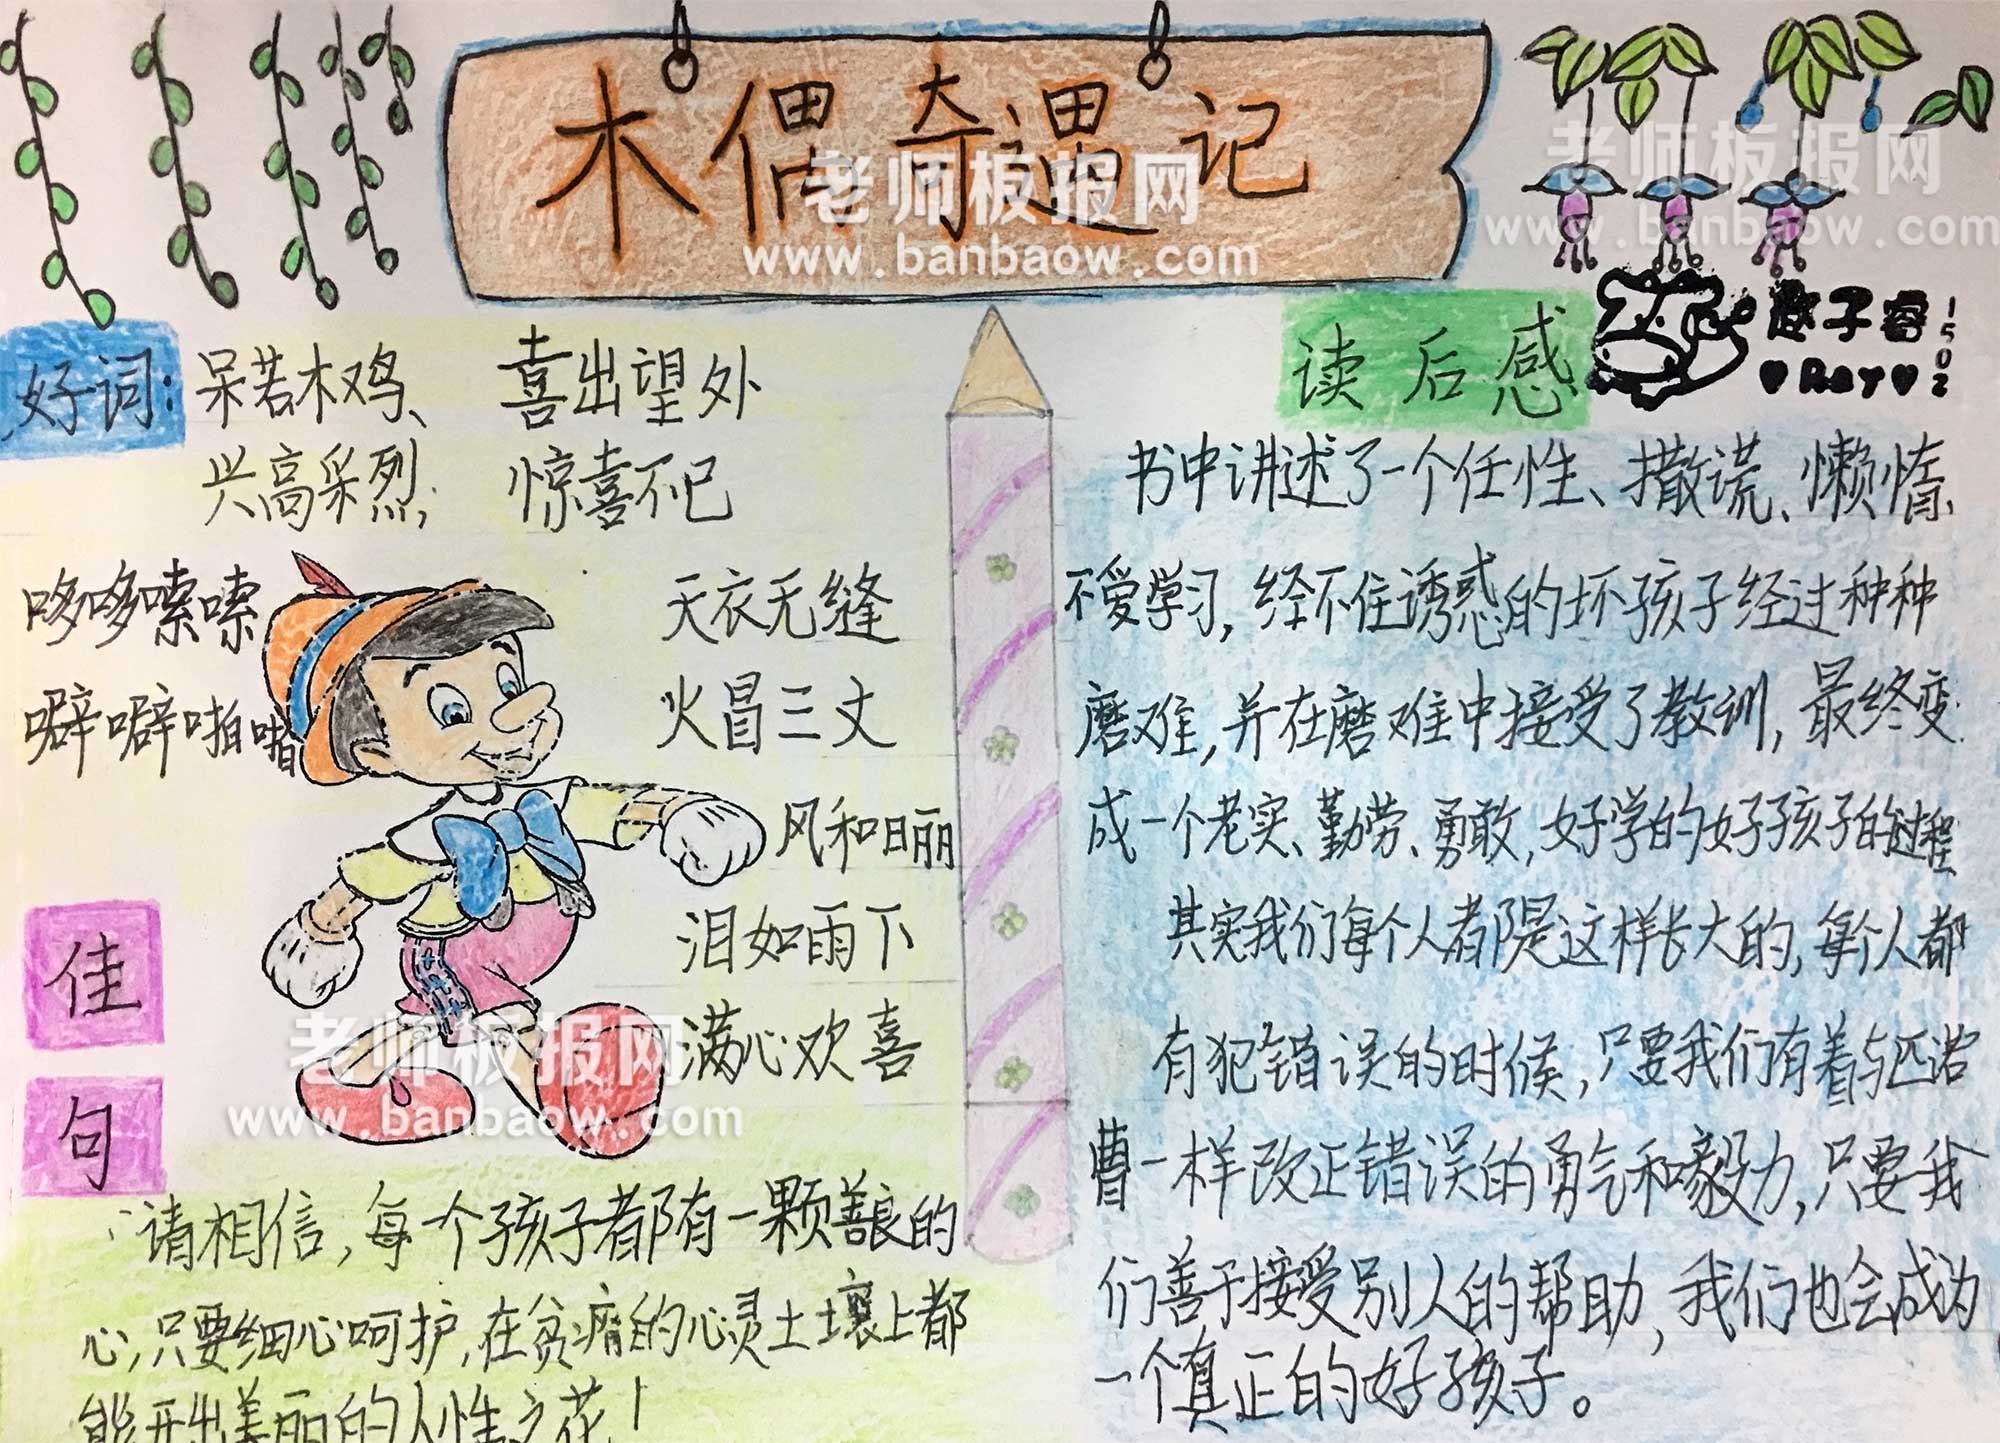 木偶奇遇记
老师板报网
www.banbaow.com
老师板报网
www.banbaow.com
赵子睿
1502
Ray
好词：呆若木鸡、 喜出望外
兴高采烈， 惊喜不已
哆哆嗦嗦
噼噼啪啪
天衣无缝
火冒三丈
风和日丽
泪如雨下
满心欢喜
老师板报网
www.banbaow.com
佳
句
请相信，每一个孩子都有一颗善良的
心，只要细心呵护，在贫瘠的心灵土壤上都
能开出美丽的人性之花！
读后感
书中讲述了一个任性、撒谎、懒惰、
不爱学习，经不住诱惑的坏孩子经过种种
磨难，并在磨难中接受了教训，最终变
成一个老实、勤劳、勇敢，好学的好孩子的过程
其实我们每个人都是这样长大的，每个人都
有犯错误的时候，只要我们有着与匹诺
曹一样改正错误的勇气和毅力，只要我
们善于接受别人的帮助，我们也会成为
一个真正的好孩子。